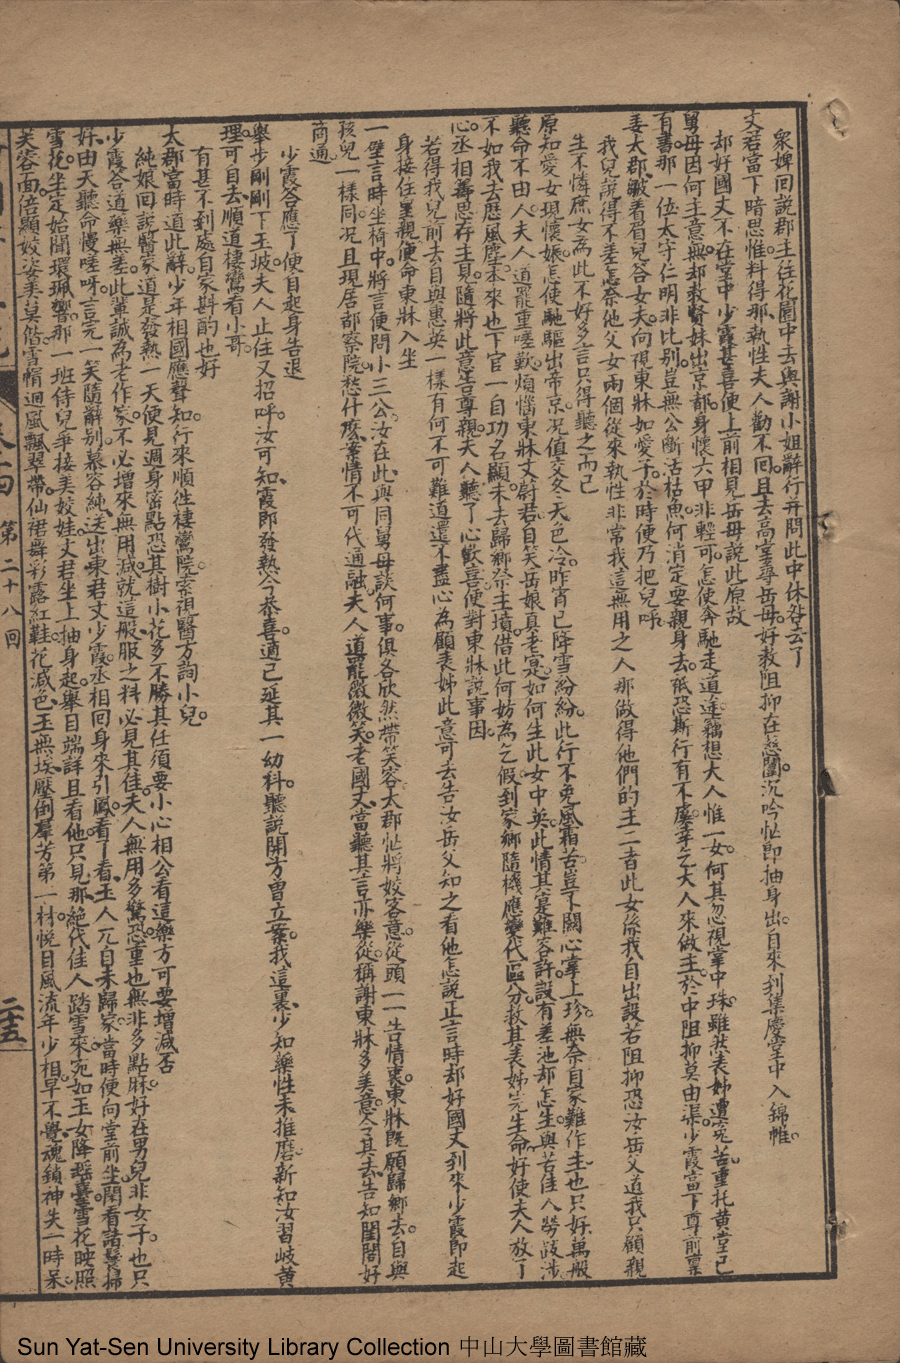 眾婢回說郡主往花園中去與謝小姐辭行并問此中休咎去了
文君當下暗思惟料得那執性夫人勸不回且去高堂尋岳母好教阻抑在慈闈沉吟忙即抽身出自來到集慶堂中入錦帷
却好國丈不在堂中少霞甚喜便上前相見岳母說此原故
舅母因何主意無却教賢妹出京都身懷六甲非輕可怎使奔馳走道途竊想大人惟一女何其忽視掌中珠雖然表姊遭寃苦重托黃堂已
有書那一位太守仁明非比別豈無公斷活枯魚何消定要親身去祇恐斯行有不虞幸乞大人來做主於中阻抑莫由渠少霞當下尊前稟
姜太郡皺着眉兒答女夫何視東牀如愛子於時便乃把兒呼
我兒說得不差怎奈他父女兩個從來執性非常我這無用之人那做得他們的主二者此女係我自出設若阻抑恐汝岳父道我只顧親
生不憐庶女為此不好多言只得聽之而已
原知愛女現懷娠怎使馳驅出帝京况值交冬天色冷昨宵已降雪紛紛此行不免風霜苦豈不關心掌上珍無奈自家難作主也只好萬般
聽命不由人夫人道罷重嗟歎煩惱東牀文尉君自笑岳娘真老寔如何生此女中英此情其寔難容許設有差池却怎生與若佳人勞跋涉
不如我去歷風塵本來也下官一自功名顯未去歸鄉祭主墳借此何妨為乞假到家鄉隨機應變代區分救其表姊先生命好使夫人放了
心丞相籌思存主見隨將此意告尊親夫人聽了心歡喜便對東牀說事因
若得我兒前去自與惠英一樣有何不可難道還不盡心為顧表姊此意可去告汝岳父知之看他怎說正言時却好國丈到來少霞即起
身接住呈親便命東牀入坐
一壁言時坐椅中將言便問小三公汝在此與同舅母談何事俱各欣然帶笑容太郡忙將姣客意從頭一一告情衷東牀既願歸鄉去自與
孩兒一樣同况且現居都察院愁什麽案情不可代通融夫人道罷微微笑老國丈當聽其言亦樂從稱謝東牀多美意今其去告知閨閣好
商通
少霞答應了便自起身告退
舉步剛剛下玉坡夫人止住又招呼汝可知霞郎發熱今忝喜適已延其一幼科聽說開方曾立案我這裏少知藥性未推磨新知汝習歧黃
理可自去順道棲鸞看小哥
有甚不到處自家斟酌也好
太郡當時道此辭少年相國應聲知行來順徃棲鸞院索視醫方詞小兒
純娘回說醫家道是發熱一天便見週身密點恐其樹小花多不勝其任須要小心相公看這藥方可要增減否
少霞答道藥無差此輩誠為老作家不必增來無用減就這般服之料必見其佳夫人無用多驚恐重也無非多點痳好在男兒非女子也只
好由天聽命慢嗟呀言完一笑隨辭別慕容純送出東君文少霞丞相回身來引鳳看了一看玉人兀自未歸家當時便向堂前坐閑看諸鬟掃
雪花坐定始聞環珮響那一班侍兒爭接美姣娃丈君坐上抽身起舉目端詳且看他只見那絶代佳人踏雪來宛如玉女降瑤臺雪花映照
芙蓉面倍顯姣姿美莫偕雲帽迴風飄翠帶仙裙舞彩露紅鞋花減色玉無埃壓倒羣芳第一材悅目風流年少相早不覺魂鎖神失一時呆
第二十八回
二十五
Sun Yat-Sen University Library Collection 中山大學圖書館藏